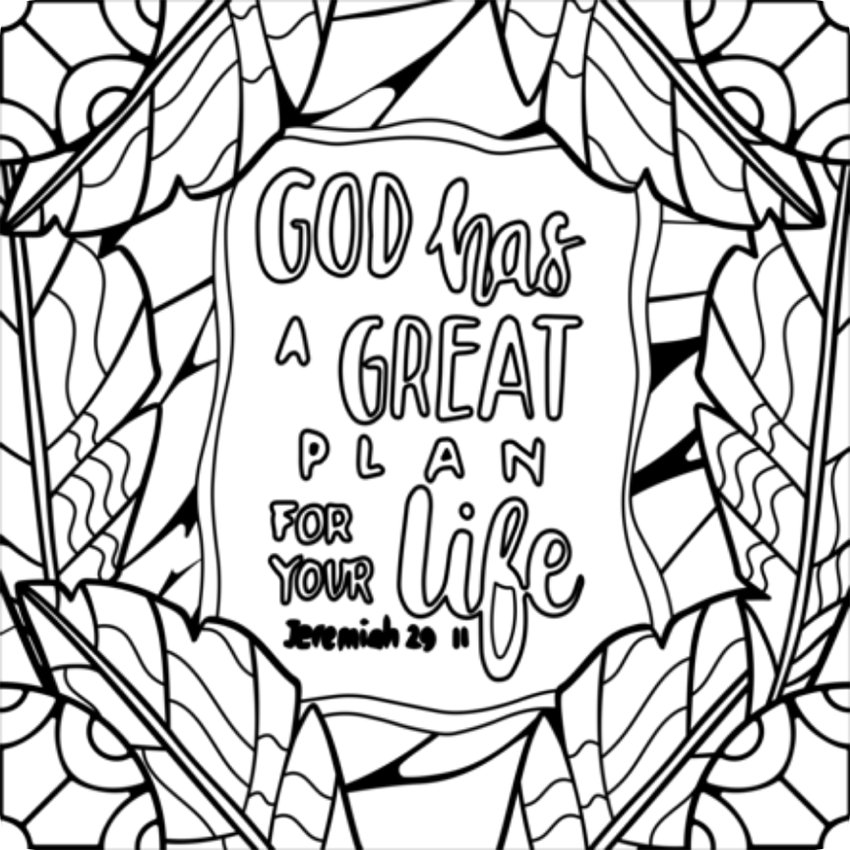 GOD has
A GREAT
PLAN
FOR
YOUR life
Jeremiah 29 11